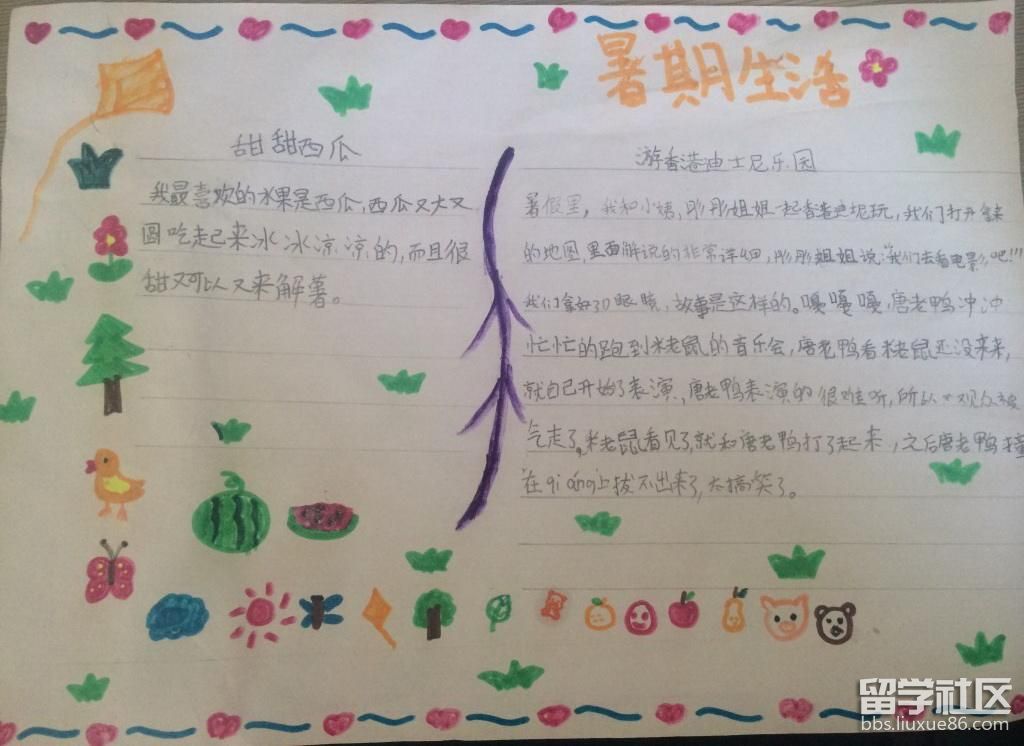 暑期生活
甜甜西瓜
我最喜欢的水果是西瓜,西瓜又大又
圆吃起来冰冰凉凉的,而且很
甜又可以又来解暑。
游香港迪士尼乐园
暑假里,我和小姨,彤彤姐姐一起香港迪尼玩,我们打开
的地图,里面解说的非常详细,彤彤姐姐说:“我们去看电影吧!!!”
我们拿好3D眼镜,故事是这样的。嘎嘎嘎,唐老鸭冲冲
忙忙的跑到米老鼠的音乐会,唐老鸭看米老鼠还没来来,
就自己开始了表演,唐老鸭表演的很难听,所以观众被
气走了,米老鼠看见了就和唐老鸭打了起来,之后唐老鸭撞
在qiáng上拔不出来了,太搞笑了。
留学社区
bbs.liuxue86.com